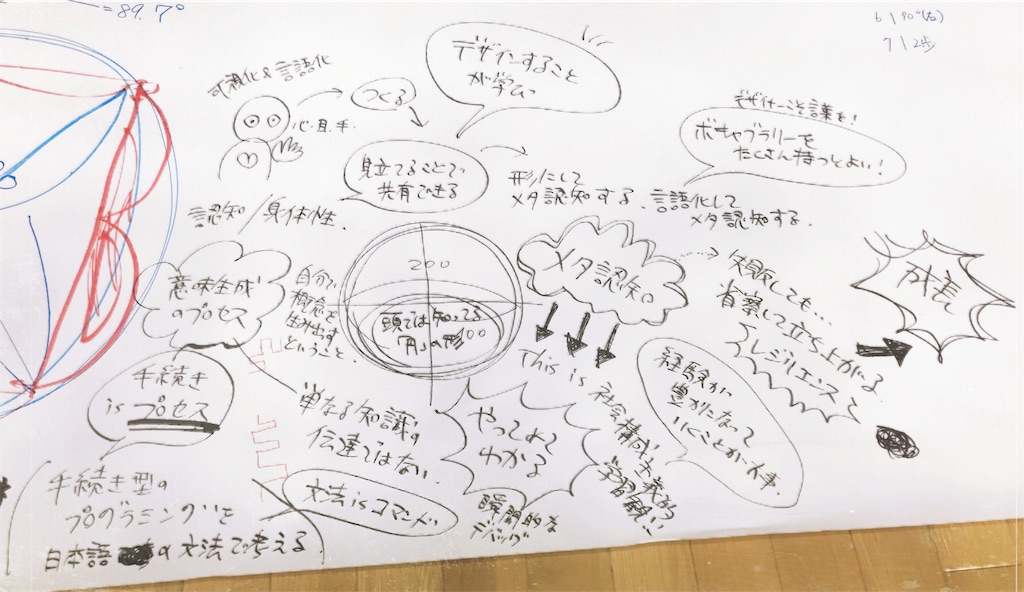 =89.7°
6 | 90°(右)
7 | 2歩
可視化&言語化
つくる
心・耳・手・
デザインすること
が学び
デザイナーこそ言葉を!
ボキャブラリーを
たくさん持つとよい!
見立てることで
共有できる
形にして
メタ認知する、
言語化して
メタ認知する.
認知/身体性.
意味生成
のプロセス
自分で
概念を
生み出す
ということ
200
頭では知ってる
「円」の形
100
メタ認知。
失敗しても…
省察して立ち上がる
レジリエンス
成長
手続き
is プロセス
単なる知識の
伝達ではない
やってみて
わかる
This is 社会構成主義的
学習観!!
経験が
豊かになって
いくことが大事.
手続き型の
プログラミングを
日本語の文法で考える
文法isコマンド
瞬間的な
デバッグ